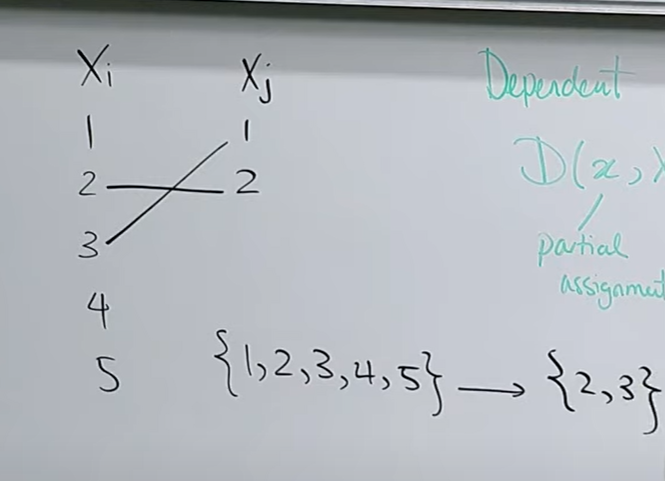 Xi
Xj
1
1
2
2
3
4
5
{1,2,3,4,5} → {2,3}
Dependent
D(x,
partial
assignment